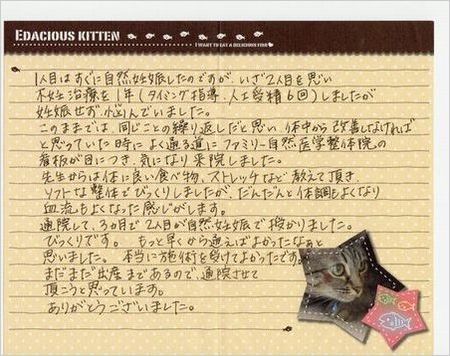 EDACIOUS KITTEN
I WANT TO EAT A DELICIOUS FISH
1人目はすぐに自然妊娠したのですが、いざ2人目を思い
不妊治療を1年(タイミング指導、人工受精6回)しましたが
妊娠せず、悩んでいました。
このままでは、同じことの繰り返しだと思い、体中から改善しなければ
と思っていた時によく通る道にファミリー自然医学整体院の
看板が目につき、気になり来院しました。
先生からは体に良い食べ物、ストレッチなど教えて頂き、
ソフトな整体でびっくりしましたが、だんだんと体調もよくなり
血流もよくなった感じがします。
通院して、3ヶ月で2人目が自然妊娠で授かりました。
びっくりです。もっと早くから通えばよかったなぁと
思いました。本当に施術を受けてよかったです。
まだまだ出産まであるので、通院させて
頂こうと思っています。
ありがとうございました。